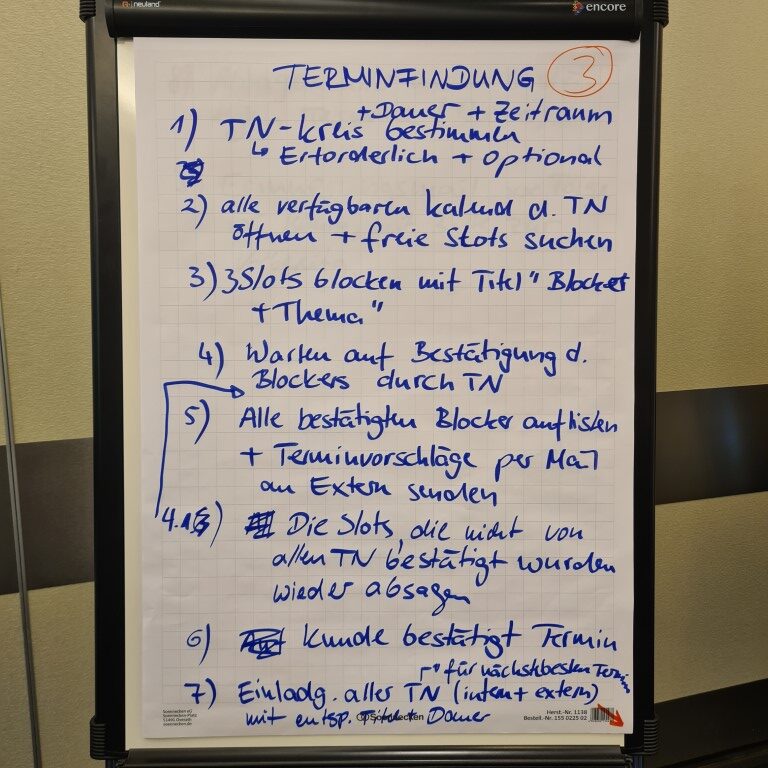 neuland
encore
TERMINFINDUNG 3
+ Dauer + Zeitraum
1) TN-kreis bestimmen
↳ Erforderlich + optional
2) alle verfügbaren kalend d. TN
öffnen + freie Slots suchen
3) 3 Slots blocken mit Titel "Blocker
+ Thema"
4) Warten auf Bestätigung d.
Blockers durch TN
5) Alle bestätigten Blocker auflisten
+ Terminvorschläge per Mail
an Extern senden
4.1) Die Slots, die nicht von
allen TN bestätigt wurden
wieder absagen
6) kunde bestätigt Termin
für nächstbesten Termin
7) Einladg. aller TN (intern + extern)
mit entsp. Titel + Dauer
Soennecken eG
Soennecken-Platz
51491 Overath
soennecken.de
Soennecken
Herst.-Nr. 1138
Bestell.-Nr. 155 0225 02